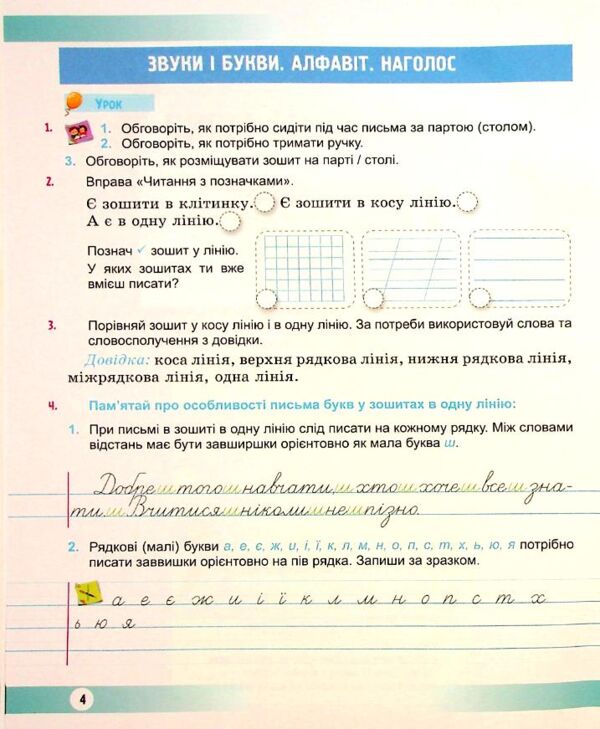 ЗВУКИ І БУКВИ. АЛФАВІТ. НАГОЛОС
УРОК
1. 1. Обговоріть, як потрібно сидіти під час письма за партою (столом).
2. Обговоріть, як потрібно тримати ручку.
3. Обговоріть, як розміщувати зошит на парті / столі.
2. Вправа «Читання з позначками».
Є зошити в клітинку. Є зошити в косу лінію.
А є в одну лінію.
Познач ✓ зошит у лінію.
У яких зошитах ти вже
вмієш писати?
3. Порівняй зошит у косу лінію і в одну лінію. За потреби використовуй слова та
словосполучення з довідки.
Довідка: коса лінія, верхня рядкова лінія, нижня рядкова лінія,
міжрядкова лінія, одна лінія.
4. Пам'ятай про особливості письма букв у зошитах в одну лінію:
1. При письмі в зошиті в одну лінію слід писати на кожному рядку. Між словами
відстань має бути завширшки орієнтовно як мала буква ш.
Добре ш того ш навчати, ш хто ш хоче ш все ш зна-
ти. ш Вчитися ш ніколи ш не ш пізно.
2. Рядкові (малі) букви а, е, є, ж, и, і, ї, к, л, м, н, о, п, с, т, х, ь, ю, я потрібно
писати заввишки орієнтовно на пів рядка. Запиши за зразком.
а е є ж и і ї к л м н о п с т х
ь ю я
4